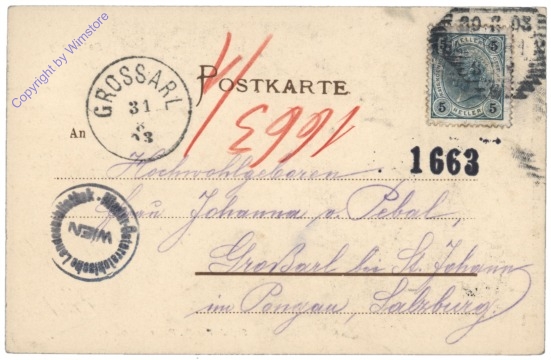 Copyright by Wimstore
GROSSARL
31
8
03
POSTKARTE
An
30 8 03
5 HELLER 5
1663
1663
Hochwohlgeboren
Frau Johanna v. Pebal,
Großarl bei St. Johann
im Pongau, Salzburg.
Niederösterreichische Landesbibliothek
WIEN